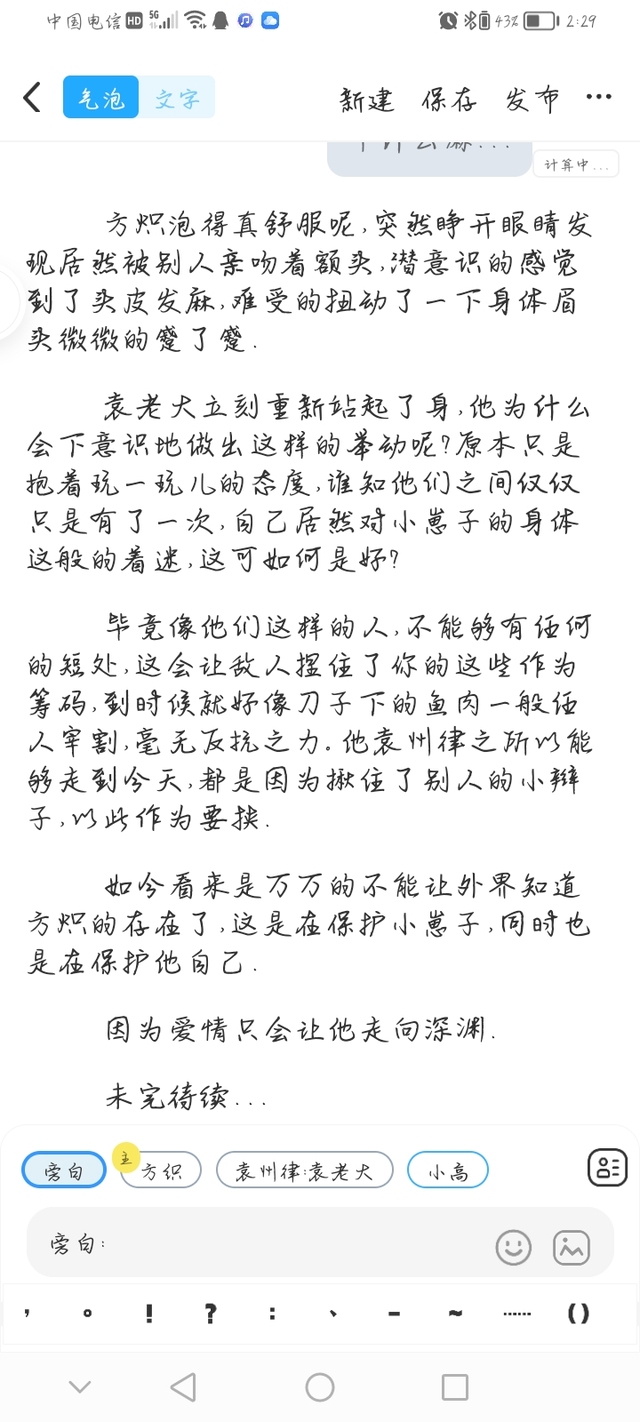 中国电信 HD 5G 43% 2:29
气泡 文字 新建 保存 发布 ...
计算中...
方炽泡得真舒服呢,突然睁开眼睛发
现居然被别人亲吻着额头,潜意识的感觉
到了头皮发麻,难受的扭动了一下身体眉
头微微的蹙了蹙.
袁老大立刻重新站起了身,他为什么
会下意识地做出这样的举动呢?原本只是
抱着玩一玩儿的态度,谁知他们之间仅仅
只是有了一次,自己居然对小崽子的身体
这般的着迷,这可如何是好?
毕竟像他们这样的人,不能够有任何
的短处,这会让敌人捏住了你的这些作为
筹码,到时候就好像刀子下的鱼肉一般任
人宰割,毫无反抗之力。他袁州律之所以能
够走到今天,都是因为揪住了别人的小辫
子,以此作为要挟.
如今看来是万万的不能让外界知道
方炽的存在了,这是在保护小崽子,同时也
是在保护他自己.
因为爱情只会让他走向深渊.
未完待续...
旁白 主 方织 袁州律:袁老大 小高
旁白:
, 。 ! ? : 、 - ~ ...... ()